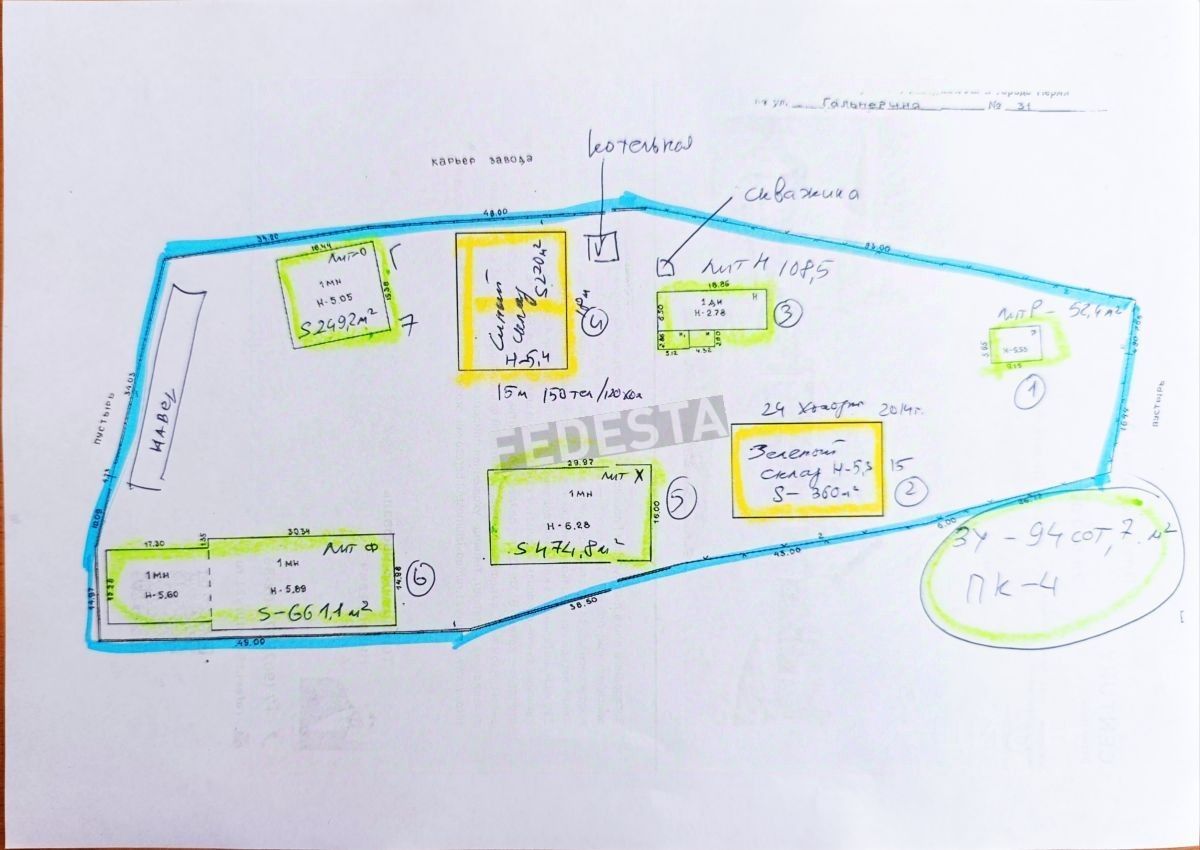 города Перми
по ул. Гальперина № 31
котельная
карьер завода
скважина
48.00
33.00
83.00
16.44
Лит-О
1мн
Н-5.05
S 249,2 м²
15.38
7
Синий склад
S 220 м²
Н-5,4
4
15м 150 тел/120 хол
Лит Н 108,5
18.86
1 дн
Н-2.78
Н
6.50
3
5.12
4.52
Лит Р - 52,4 м²
Р
Н-5.55
5.95
9.15
1
16.44
пустырь
пустырь
34.03
навес
4.13
10.09
14.97
FEDESTA
24 2014г.
Зеленый
склад Н-5,3
S- 360 м²
15
2
29.97
Лит Х
1мн
Н-6.28
S 474,8 м²
16.00
5
17.30
1.35
30.34
Лит Ф
1мн
Н-5.60
12.28
1мн
Н-5.89
S-661,1 м²
14.98
6
6.00
43.00
38.50
49.00
ЗУ - 94 сот, 7. м²
ПК-4